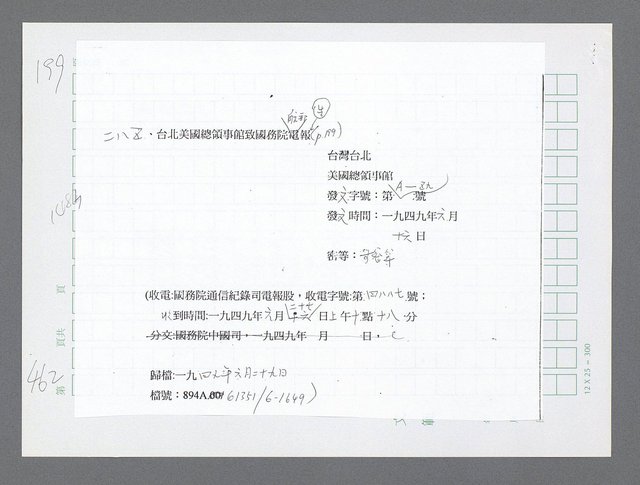 199
二八五、台北美國總領事館致國務院電報(p.199)
件
台灣台北
美國總領事館
發文字號：第 A—87 號
發文時間：一九四九年六月
十六日
密等：
(收電:國務院通信紀錄司電報股，收電字號:第四八八七號；
收到時間:一九四九年六月二十七日上午十點十八分
分文:國務院中國司，一九四九年 月 日，
歸檔:一九四九年六月二十九日
檔號：894A.00/61351/6-1649)
462
第 頁共 頁
12 X 25 = 300